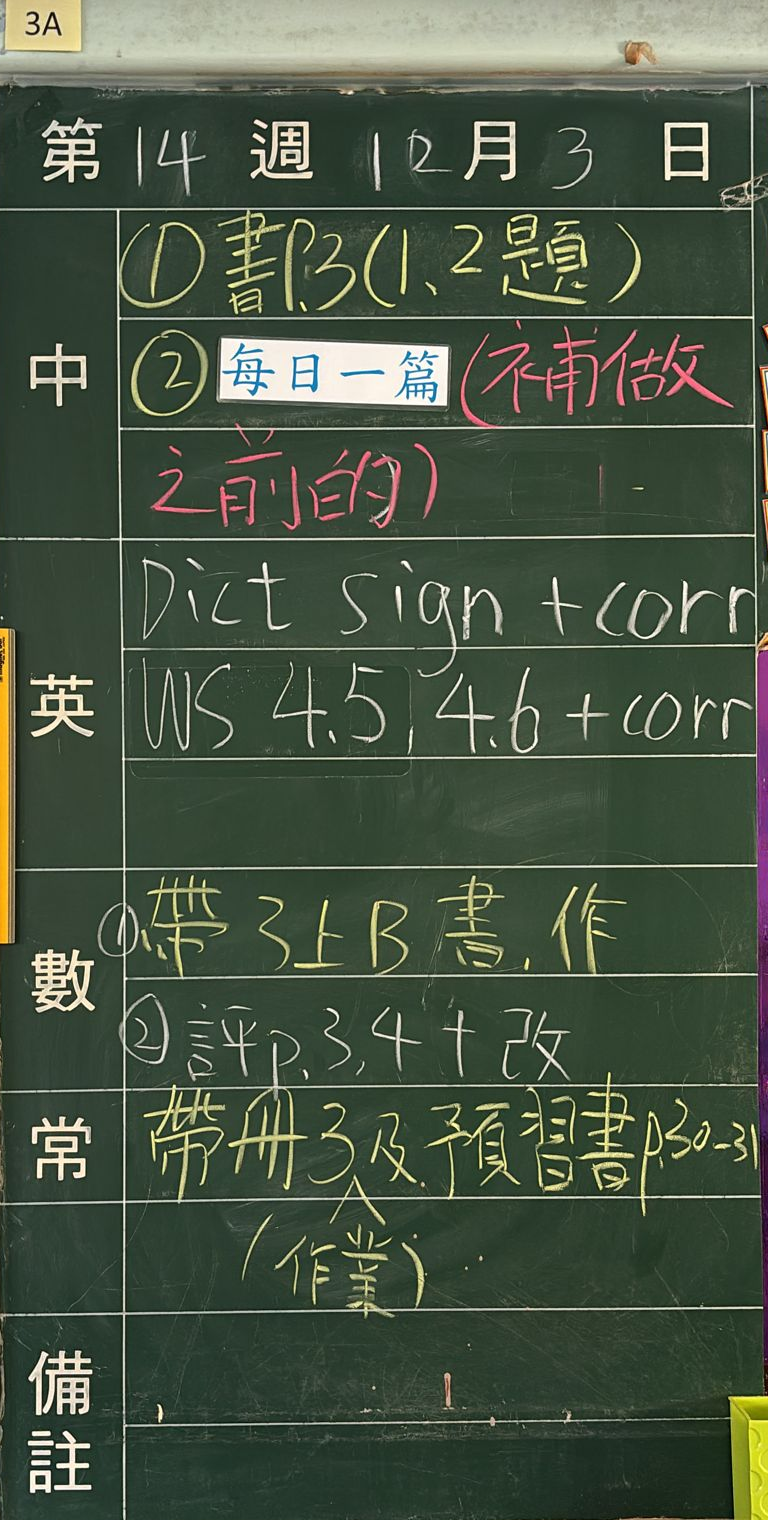 3A
第 14 週 12 月 3 日
中
① 書P.3(1、2題)
② 每日一篇 (補做
之前的)
英
Dict sign + corr
WS 4.5, 4.6 + corr
數
① 帶 3上B 書、作
② 評p.3,4 + 改
常
帶冊3及預習書p.30-31
(作業)
備註